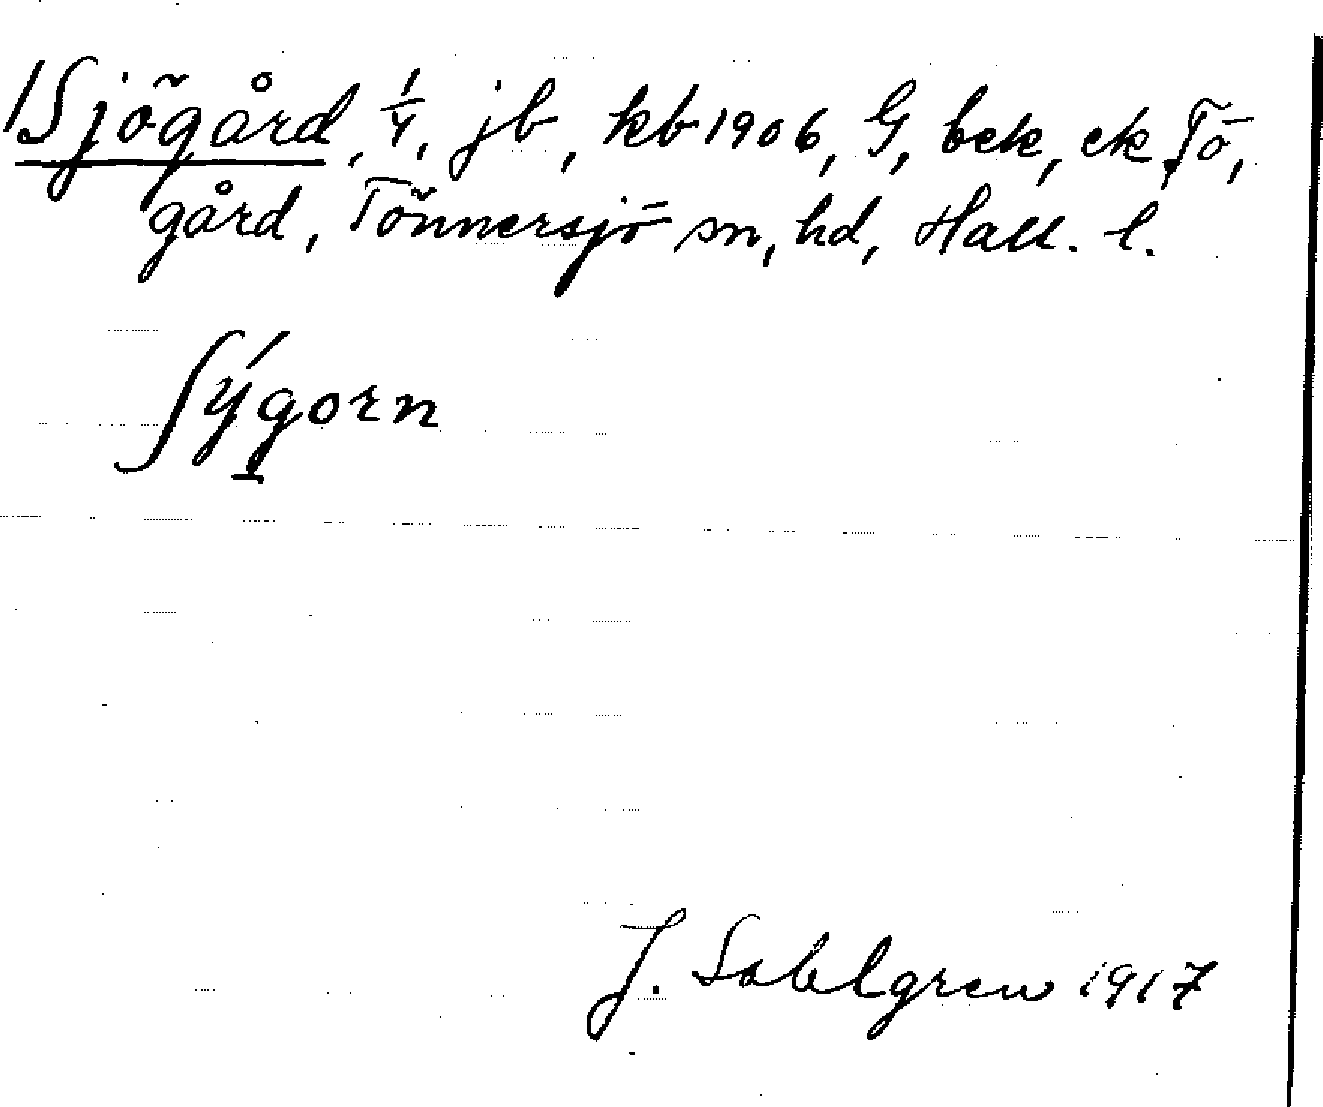 /Sjögård, 1/4, jb, kb 1906, G, bek, ek, Tö,
gård, Tönnersjö sn, hd, Hall. l.
ʃýgorn
J. Sahlgren 1917